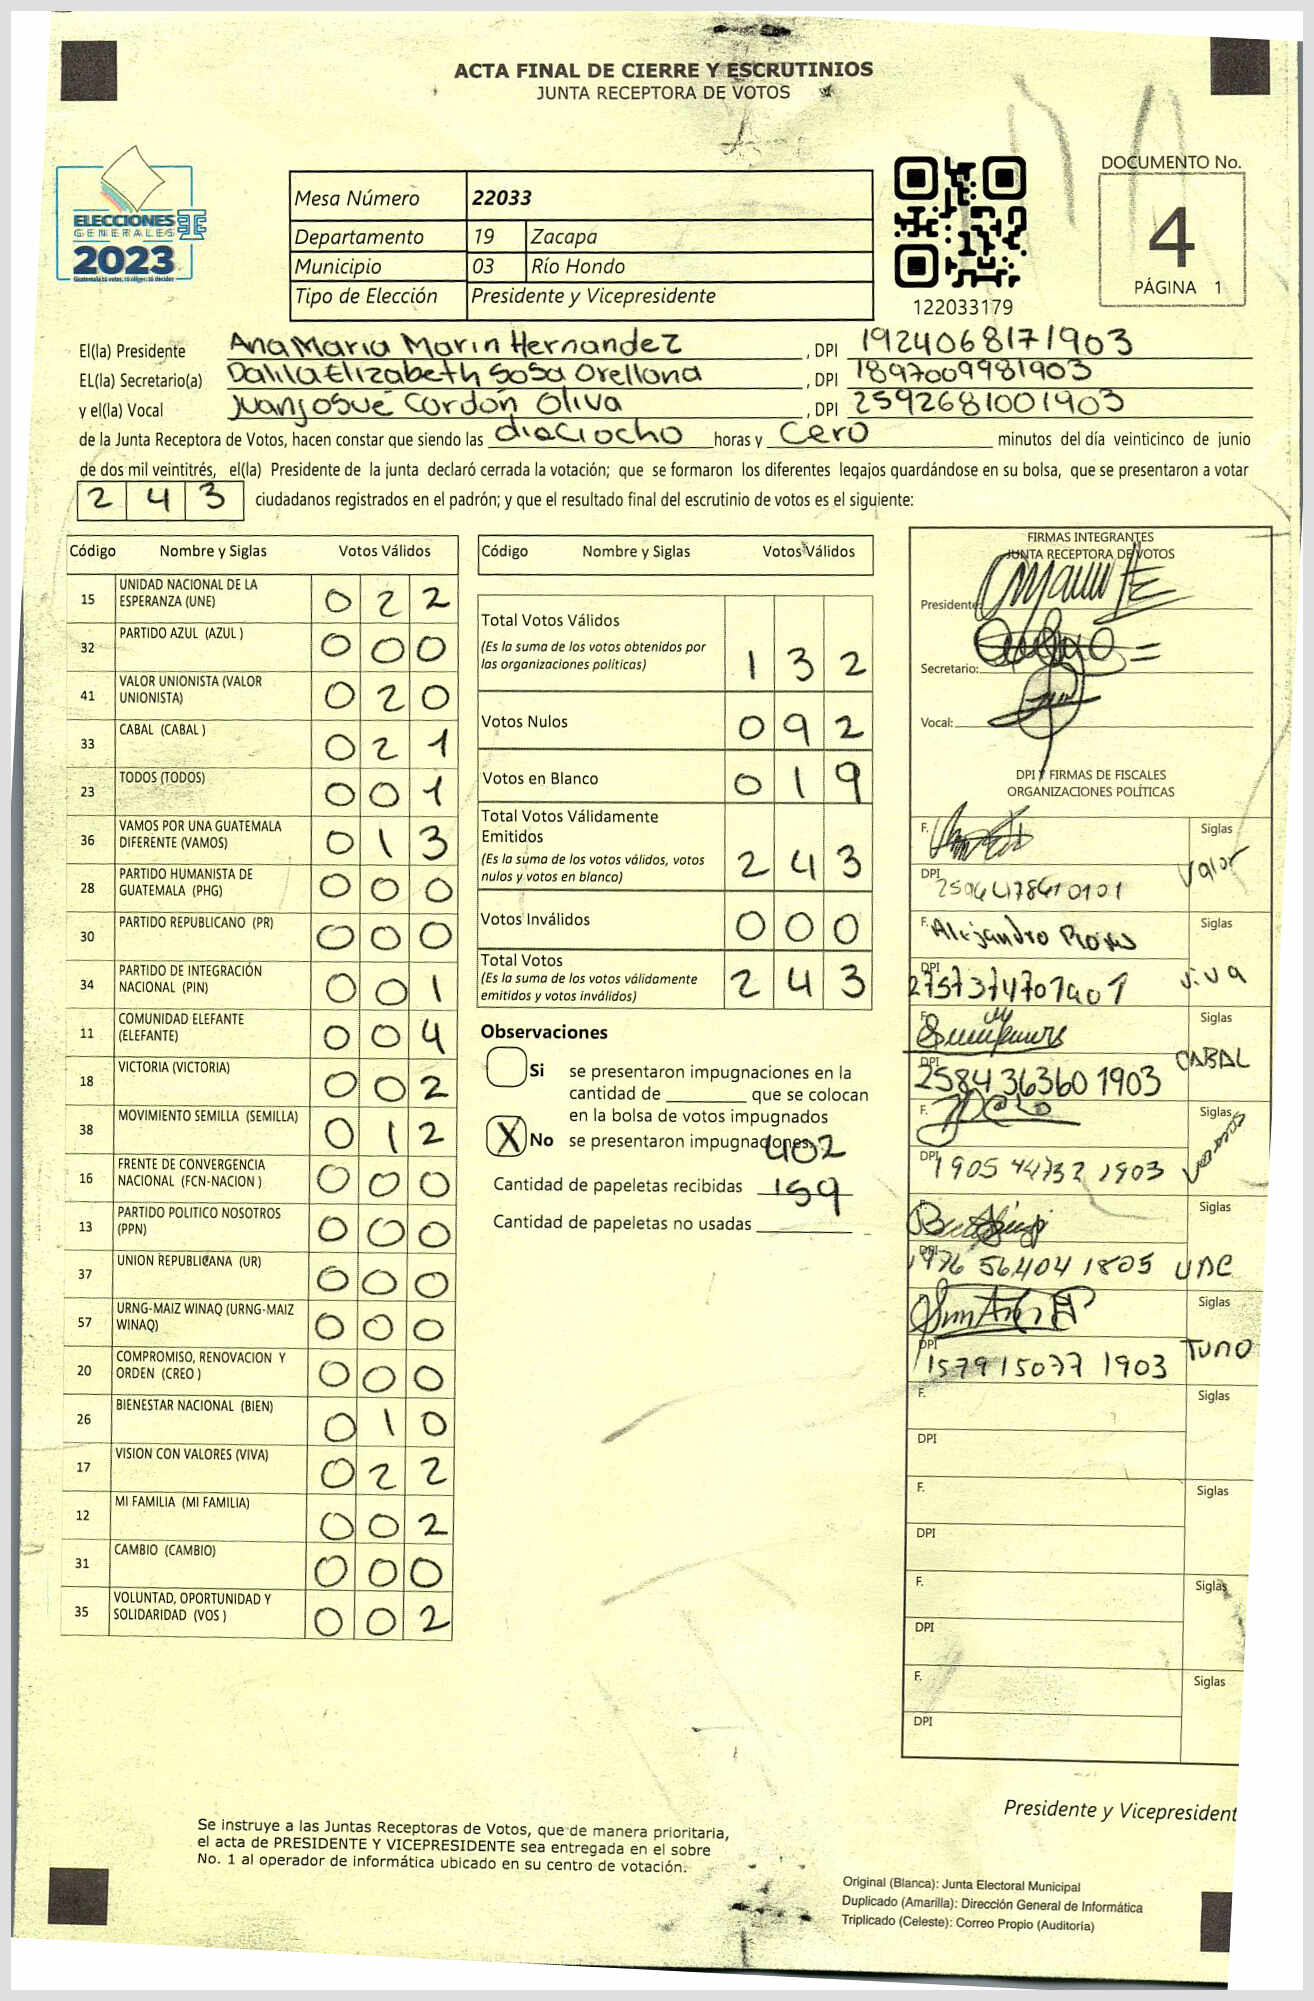 ACTA FINAL DE CIERRE Y ESCRUTINIOS
JUNTA RECEPTORA DE VOTOS
ELECCIONES
GENERALES
2023
Mesa Número 22033
Departamento 19 Zacapa
Municipio 03 Río Hondo
Tipo de Elección Presidente y Vicepresidente
122033179
DOCUMENTO No.
4
PÁGINA 1
El(la) Presidente Ana Maria Marin Hernandez , DPI 1924068171903
EL(la) Secretario(a) Dalila Elizabeth Sosa Orellana , DPI 1897009981903
y el(la) Vocal Juan josué Cordón Oliva , DPI 2592681001903
de la Junta Receptora de Votos, hacen constar que siendo las dieciocho horas y cero minutos del día veinticinco de junio
de dos mil veintitrés, el(la) Presidente de la junta declaró cerrada la votación; que se formaron los diferentes legajos guardándose en su bolsa, que se presentaron a votar
2 4 3 ciudadanos registrados en el padrón; y que el resultado final del escrutinio de votos es el siguiente:
Código Nombre y Siglas Votos Válidos
15 UNIDAD NACIONAL DE LA ESPERANZA (UNE) 0 2 2
32 PARTIDO AZUL (AZUL ) 0 0 0
41 VALOR UNIONISTA (VALOR UNIONISTA) 0 2 0
33 CABAL (CABAL ) 0 2 1
23 TODOS (TODOS) 0 0 1
36 VAMOS POR UNA GUATEMALA DIFERENTE (VAMOS) 0 1 3
28 PARTIDO HUMANISTA DE GUATEMALA (PHG) 0 0 0
30 PARTIDO REPUBLICANO (PR) 0 0 0
34 PARTIDO DE INTEGRACIÓN NACIONAL (PIN) 0 0 1
11 COMUNIDAD ELEFANTE (ELEFANTE) 0 0 4
18 VICTORIA (VICTORIA) 0 0 2
38 MOVIMIENTO SEMILLA (SEMILLA) 0 1 2
16 FRENTE DE CONVERGENCIA NACIONAL (FCN-NACION ) 0 0 0
13 PARTIDO POLITICO NOSOTROS (PPN) 0 0 0
37 UNION REPUBLICANA (UR) 0 0 0
57 URNG-MAIZ WINAQ (URNG-MAIZ WINAQ) 0 0 0
20 COMPROMISO, RENOVACION Y ORDEN (CREO ) 0 0 0
26 BIENESTAR NACIONAL (BIEN) 0 1 0
17 VISION CON VALORES (VIVA) 0 2 2
12 MI FAMILIA (MI FAMILIA) 0 0 2
31 CAMBIO (CAMBIO) 0 0 0
35 VOLUNTAD, OPORTUNIDAD Y SOLIDARIDAD (VOS ) 0 0 2
Código Nombre y Siglas Votos Válidos
Total Votos Válidos
(Es la suma de los votos obtenidos por
las organizaciones políticas) 1 3 2
Votos Nulos 0 9 2
Votos en Blanco 0 1 9
Total Votos Válidamente
Emitidos
(Es la suma de los votos válidos, votos
nulos y votos en blanco) 2 4 3
Votos Inválidos 0 0 0
Total Votos
(Es la suma de los votos válidamente
emitidos y votos inválidos) 2 4 3
Observaciones
Si se presentaron impugnaciones en la
cantidad de ________ que se colocan
en la bolsa de votos impugnados
X No se presentaron impugnaciones
Cantidad de papeletas recibidas 402
Cantidad de papeletas no usadas 159
FIRMAS INTEGRANTES
JUNTA RECEPTORA DE VOTOS
Presidente:
Secretario:
Vocal:
DPI Y FIRMAS DE FISCALES
ORGANIZACIONES POLÍTICAS
F. Siglas
DPI Valor
F. Alejandro Siglas
DPI 2757374701901 viva
F. Siglas
DPI 2584363601903 CABAL
F. Siglas
DPI 1905447321903 Vamos
F. Siglas
DPI 1976564041805 UNE
F. Siglas
DPI 1579150771903 TODO
F. Siglas
DPI
F. Siglas
DPI
F. Siglas
DPI
F. Siglas
DPI
Presidente y Vicepresident
Se instruye a las Juntas Receptoras de Votos, que de manera prioritaria,
el acta de PRESIDENTE Y VICEPRESIDENTE sea entregada en el sobre
No. 1 al operador de informática ubicado en su centro de votación.
Original (Blanca): Junta Electoral Municipal
Duplicado (Amarilla): Dirección General de Informática
Triplicado (Celeste): Correo Propio (Auditoría)